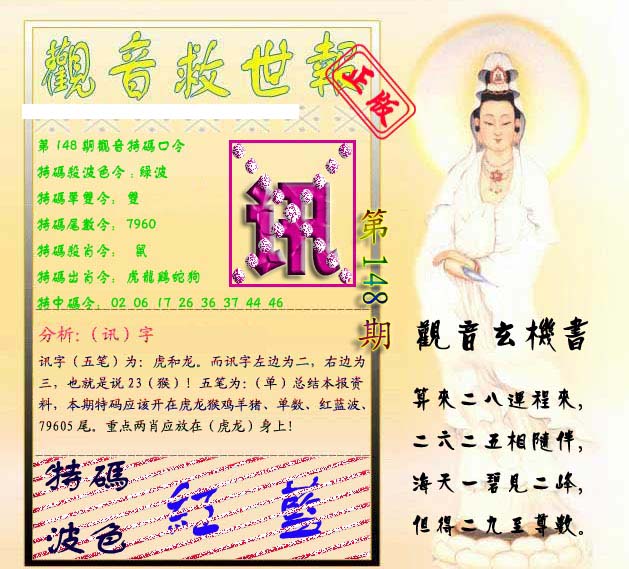 觀音救世報
正版
第148期觀音特碼口令
特碼殺波色令:綠波
特碼單雙令: 雙
特碼尾數令: 7960
特碼殺肖令: 鼠
特碼出肖令: 虎龍鷄蛇狗
特中碼令: 02 06 17 26 36 37 44 46
讯
第148期
分析:（讯）字
讯字（五笔）为：虎和龙。而讯字左边为二，右边为
三，也就是说23（猴）！五笔为：（单）总结本报资
料，本期特码应该开在虎龙猴鸡羊猪、单数、红蓝波、
79605尾。重点两肖应放在（虎龙）身上！
特碼
波色
紅 藍
觀音玄機書
算來二八運程來，
二六二五相隨伴，
海天一碧見二峰，
但得二九至尊數。